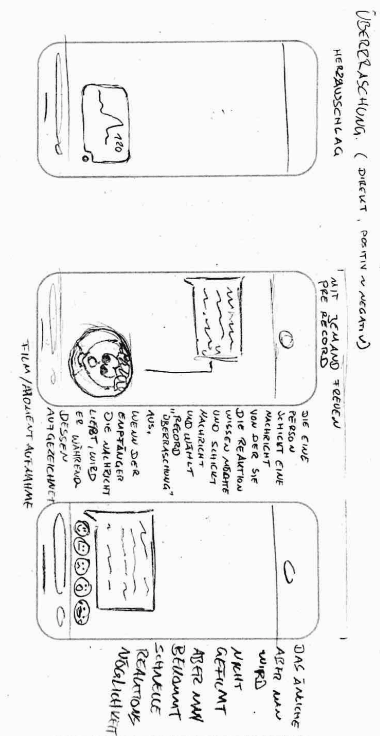 ÜBERRASCHUNG. ( DIREKT, POSITIV ~ NEGATIV)
HERZAUSCHLAG
120
MIT JEMAND FREUEN
PRE RECORD
DIE EINE
PERSON
SCHICKT EINE
NACHRICHT
VON DER SIE
DIE REAKTION
WISSEN MÖCHTE
UND SCHICKT
NACHRICHT
UND WÄHLT
"RECORD
ÜBERRASCHUNG"
AUS.
WENN DER
EMPFÄNGER
DIE NACHRICHT
LIEßT, WIRD
ER WÄHREND
DESSEN
AUFGEZEICHNET
FILM / MOMENT AUFNAHME
DAS ÄNLICHE
ABER MAN
WIRD
NICHT
GEFILMT
ABER MAN
BEKOMMT
SCHNELLE
REAKTIONS
MÖGLICHKEIT